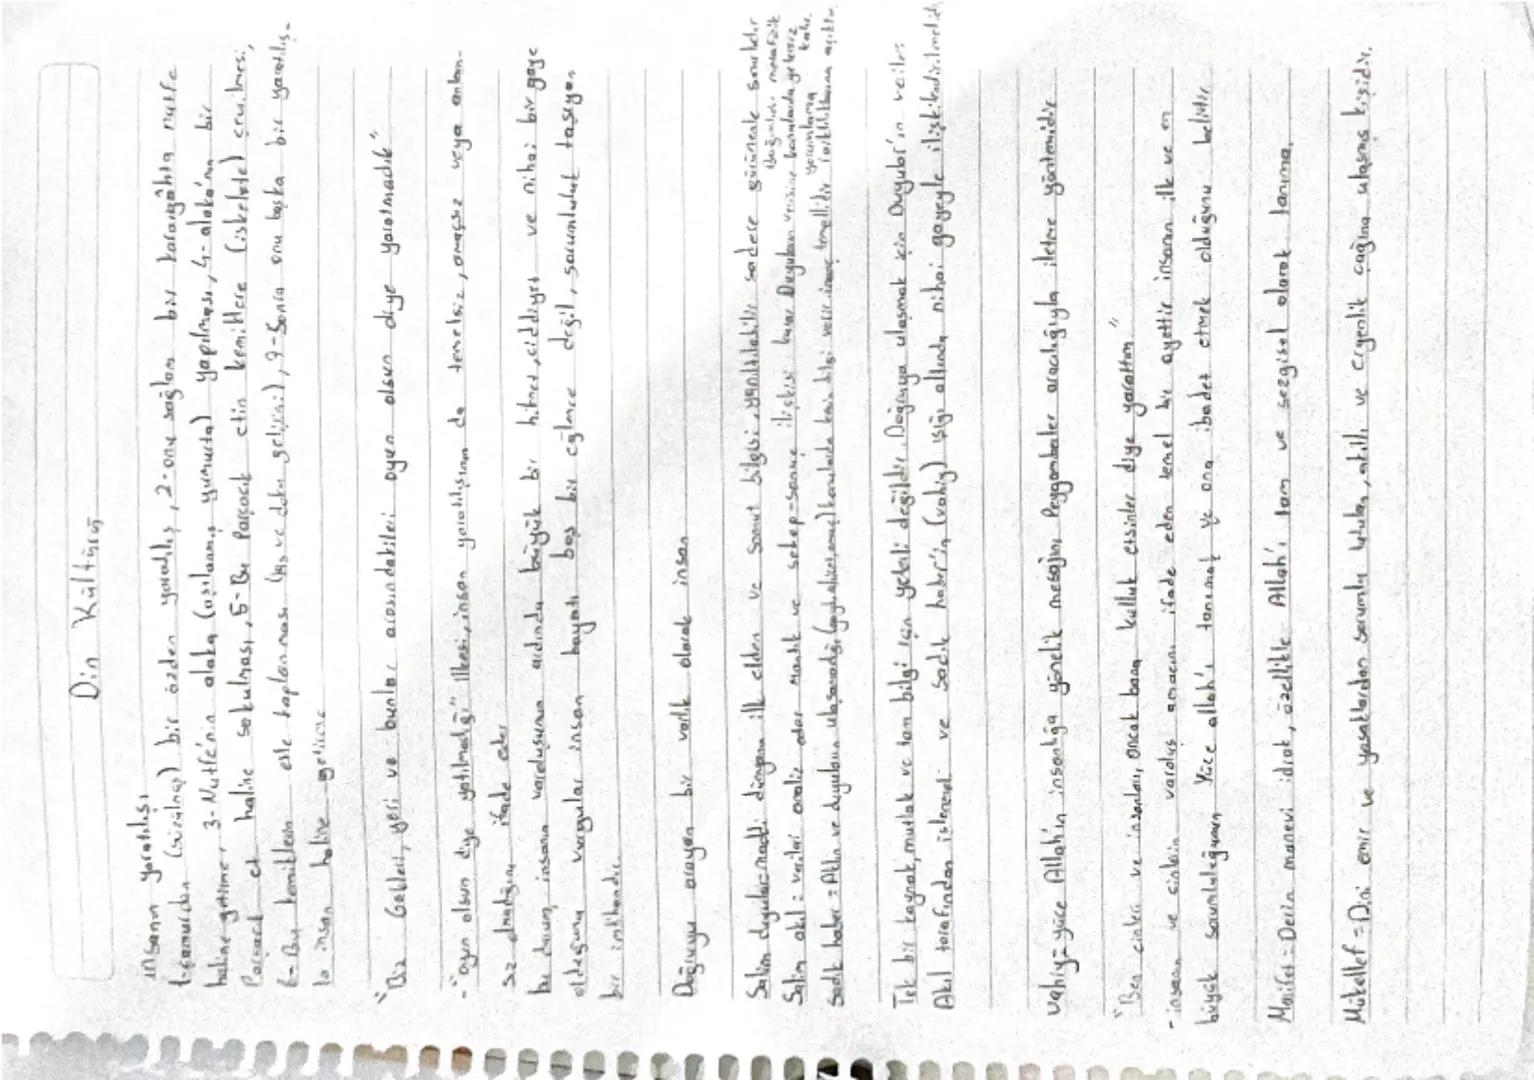 Din Kültürü
insanın yaratılışı
1-çamurdan (süzülmüş) bir özden yaratılış, 2-onu sağlam bir karargâhta nutfe
haline getirme, 3-Nutfe'nin alaka (aşılanmış yumurta) yapılması, 4-alaka'nın bir
Parçacık et haline sokulması, 5-Bu Parçacık etin kemiklere (iskelete) çevrilmesi,
6-Bu kemiklerin etle kaplanması (kas ve doku gelişimi), 7-Sonra onu başka bir yaratılış-
la insan haline getirme
"Biz Gökleri, yeri ve bunlar arasındakileri oyun olsun diye yaratmadık"
-"oyun olsun diye yaratılmadığı" ilkesi, insan yaratılışının da temelsiz, amaçsız veya anlam-
sız olmadığını ifade eder
bu durum, insanın varoluşunun ardında büyük bir hikmet, ciddiyet ve nihai bir gaye
olduğunu vurgular insan hayatı boş bir eğlence değil, sorumluluk taşıyan
bir imtihandır.
Doğruyu arayan bir varlık olarak insan
Salim duyular=maddi dünyanın ilk elden ve somut bilgisi, yanıltılabilir sadece görünenle sınırlıdır
Salim akıl = verileri analiz eder mantık ve sebep-sonuç ilişkisi kurar Duyuların verisine bağımlıdır metafizik konularda yetersiz kalır.
Sadık haber = Aklın ve duyuların ulaşamadığı (gayb, ahiret, amaç) konularda kesin bilgi verir inanç temellidir yorumlama farklılıklarına açıktır.
Tek bir kaynak, mutlak ve tam bilgi için yeterli değildir. Doğruya ulaşmak için Duyular'ın verileri
Akıl tarafından işlenmeli ve Sadık haber'in (vahiy) ışığı altında nihai gayeyle ilişkilendirilmelidir
vahiy= yüce Allah'ın insanlığa yönelik mesajını Peygamberler aracılığıyla iletme yöntemidir
"Ben cinleri ve insanları, ancak bana kulluk etsinler diye yarattım"
-insanın ve cinlerin varoluş amacını ifade eden temel bir ayettir insanın ilk ve en
büyük sorumluluğunun Yüce allah'ı tanımak ve ona ibadet etmek olduğunu belirtir
Marifet = Derin manevi idrak, özellikle Allah'ı tam ve sezgisel olarak tanıma.
Mükellef = Dini emir ve yasaklardan sorumlu tutulan, akıllı ve ergenlik çağına ulaşmış kişidir.